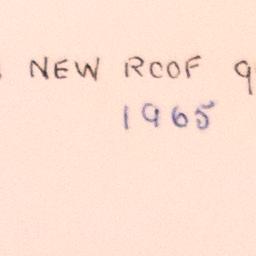 NEW ROOF
1965